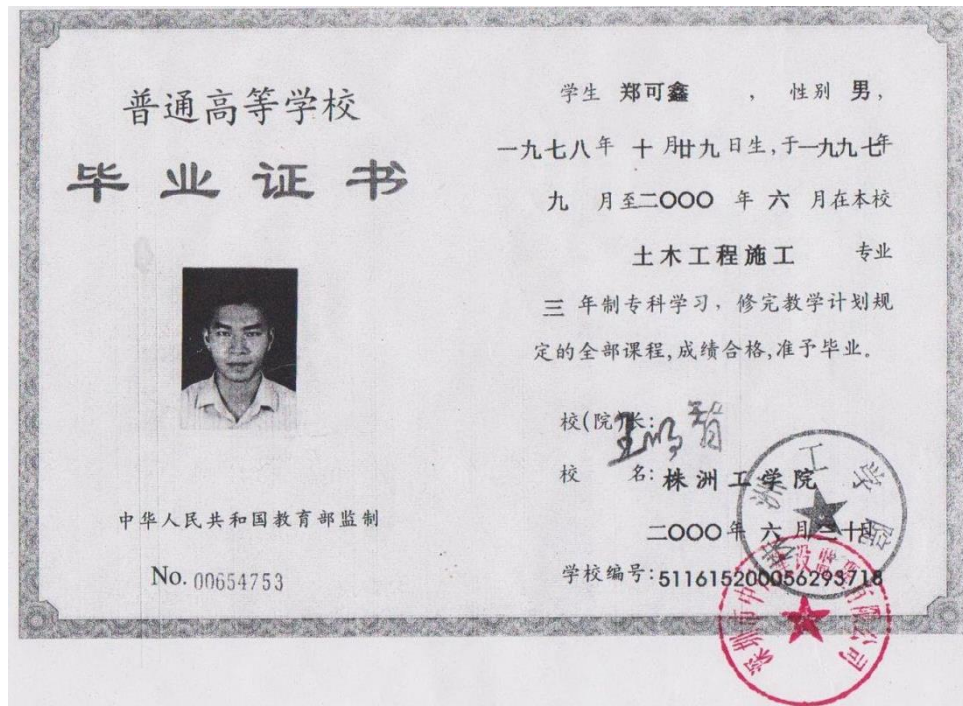 普通高等学校
毕业证书
中华人民共和国教育部监制
No. 00654753
学生 郑可鑫 ，性别 男，
一九七八年 十 月廿九日生,于一九九七年
九 月至二〇〇〇 年 六 月在本校
土木工程施工 专业
三 年制专科学习，修完教学计划规
定的全部课程,成绩合格,准予毕业。
校(院)长:
校 名: 株洲工学院
二〇〇〇年 六 月三十日
学校编号:511615200056293718
株洲工学院